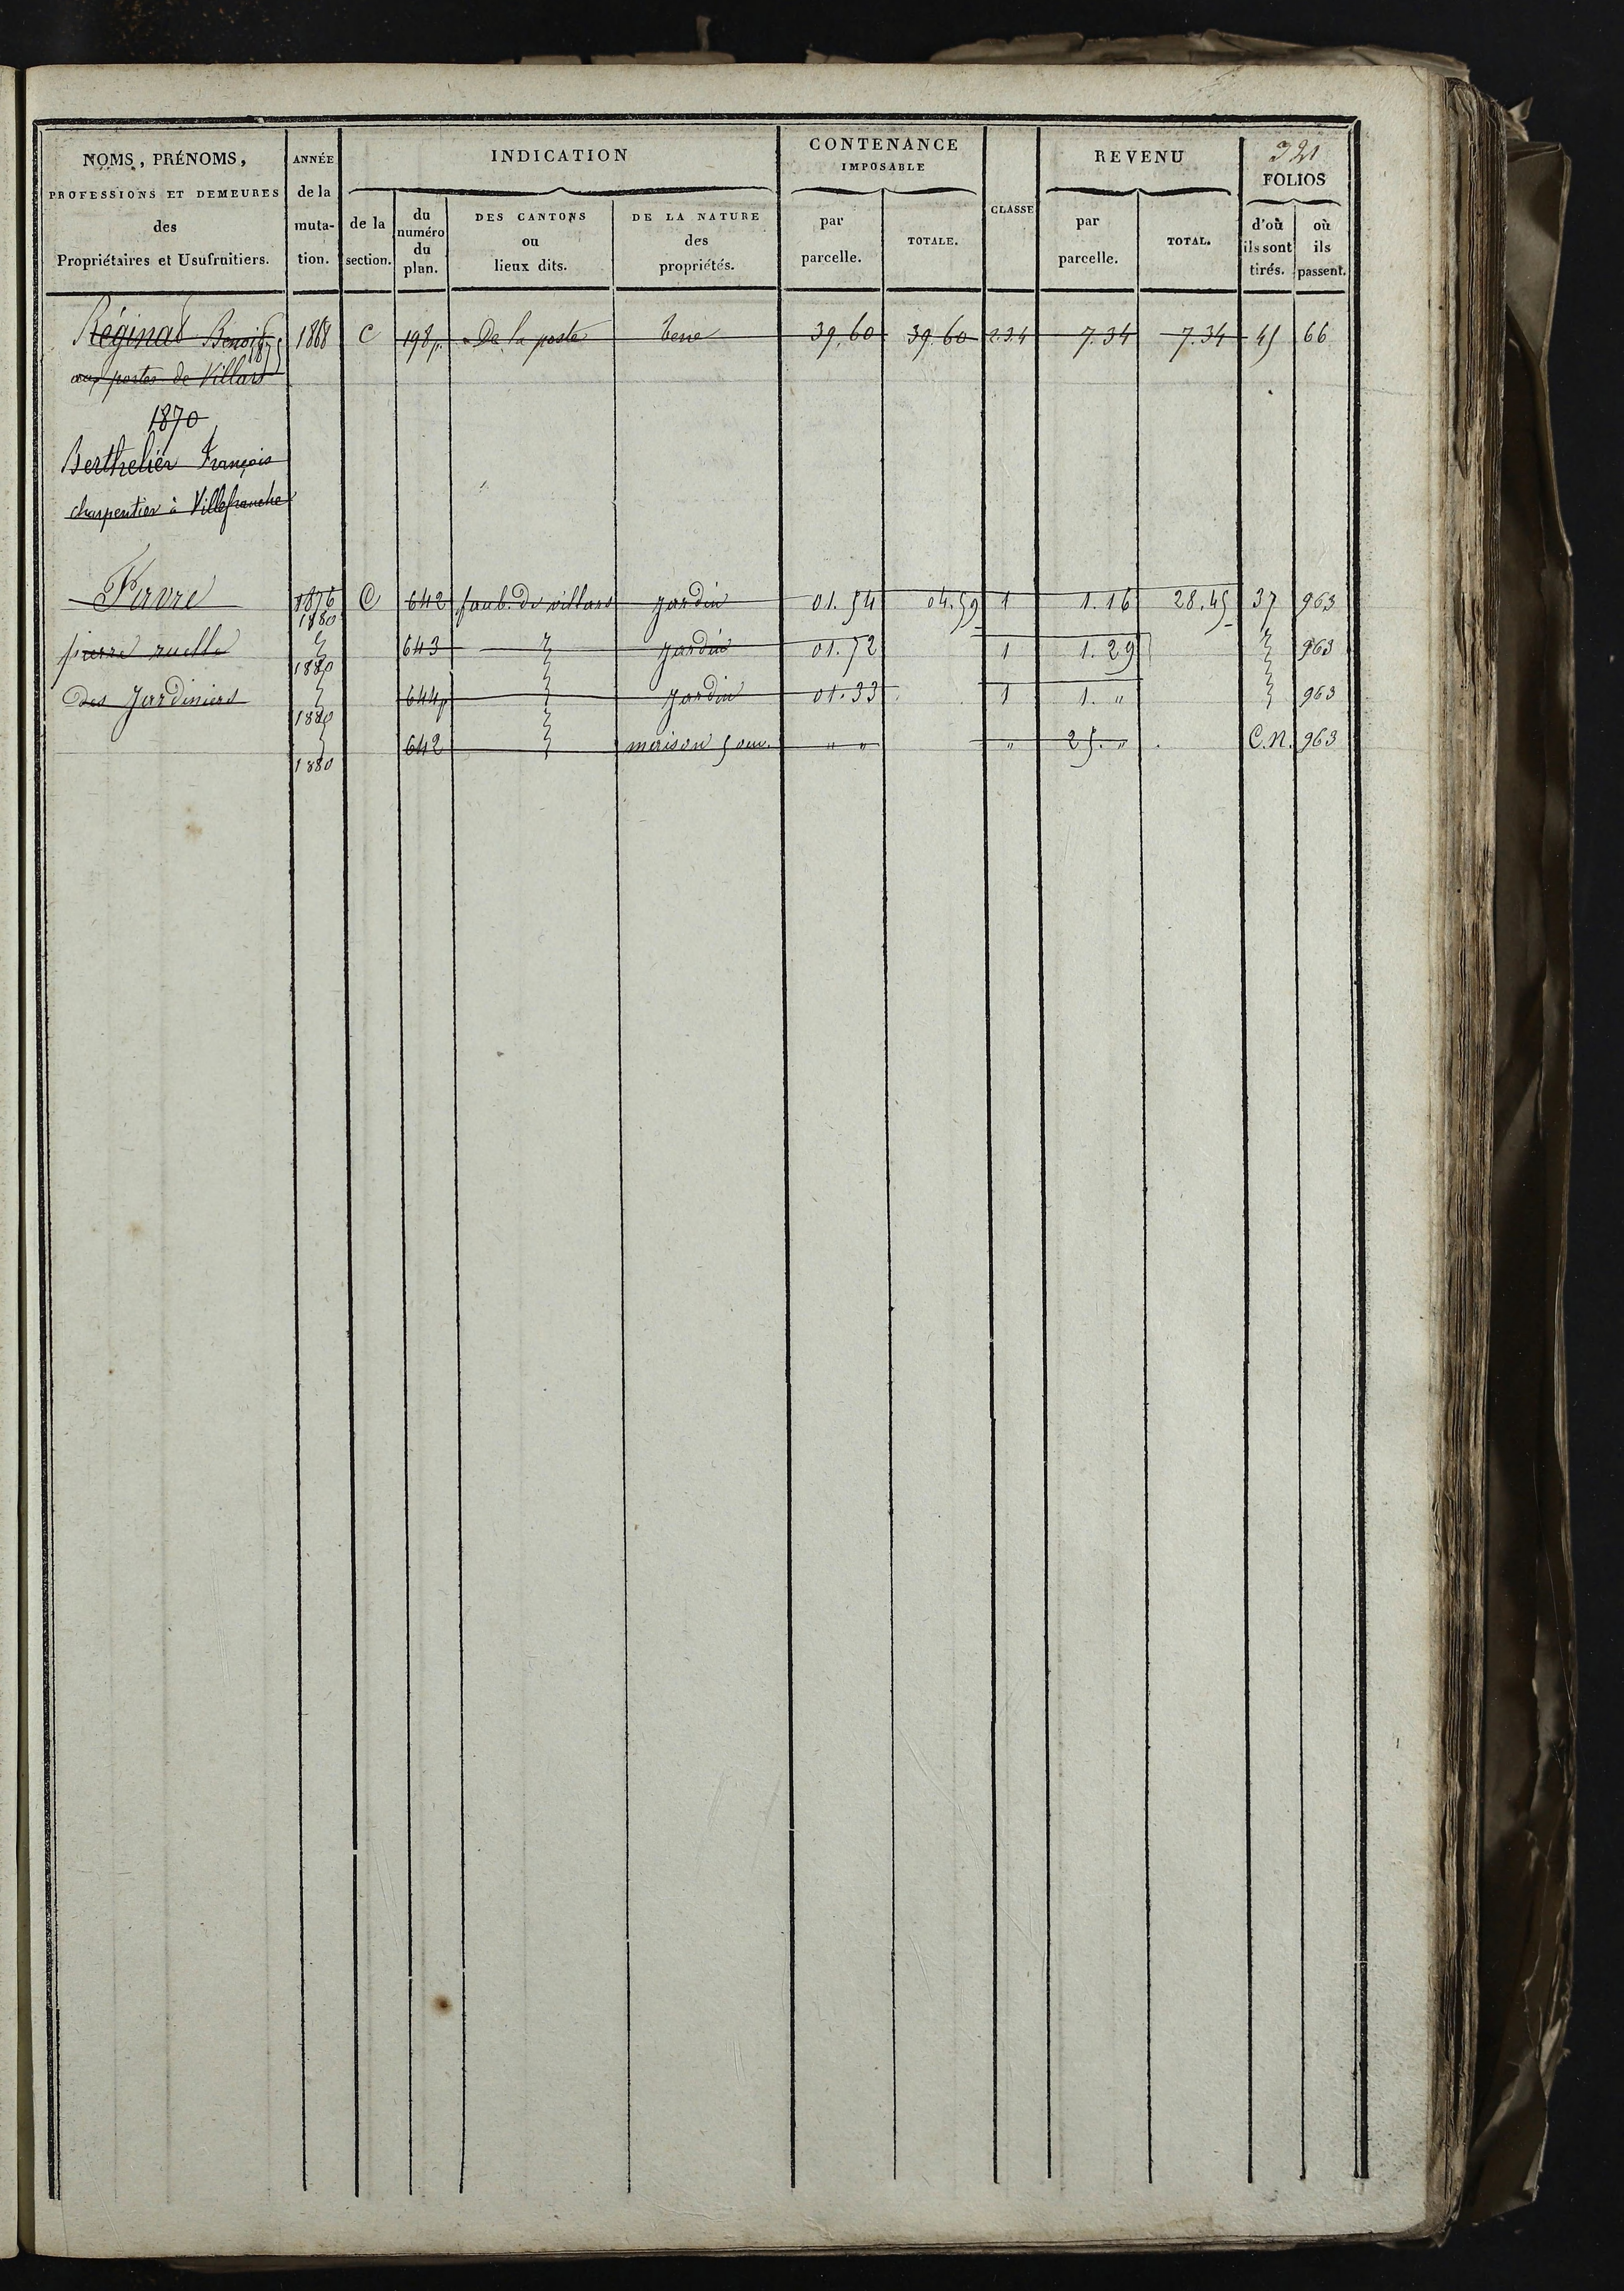 321
NOMS, PRÉNOMS,
PROFESSIONS ET DEMEURES
des
Propriétaires et Usufruitiers.
ANNÉE
de la
muta-
tion.
INDICATION
de la
section.
du
numéro
du
plan.
DES CANTONS
ou
lieux dits.
DE LA NATURE
des
propriétés.
CONTENANCE
IMPOSABLE
par
parcelle.
TOTALE.
CLASSE
REVENU
par
parcelle.
TOTAL.
FOLIOS
d'où
ils sont
tirés.
où
ils
passent.
Réginad Benoit 1868 C 198p. De la poste terre 39.60 39.60 2.3.4 7.34 7.34 45 66
1875
aux portes de Villars
1870
Berthelier François
charpentier à Villefranche
Favre 1876 C 642 faub. de villars jardin 01.54 04.59 1 1.16 28.45 37 963
1880
pierre ruelle 643 jardin 01.72 1 1.29 963
1880
des Jardiniers 644p jardin 01.33 1 1. " 963
1880
642 maison 5 ouv. " " " 25. " C.N. 963
1880